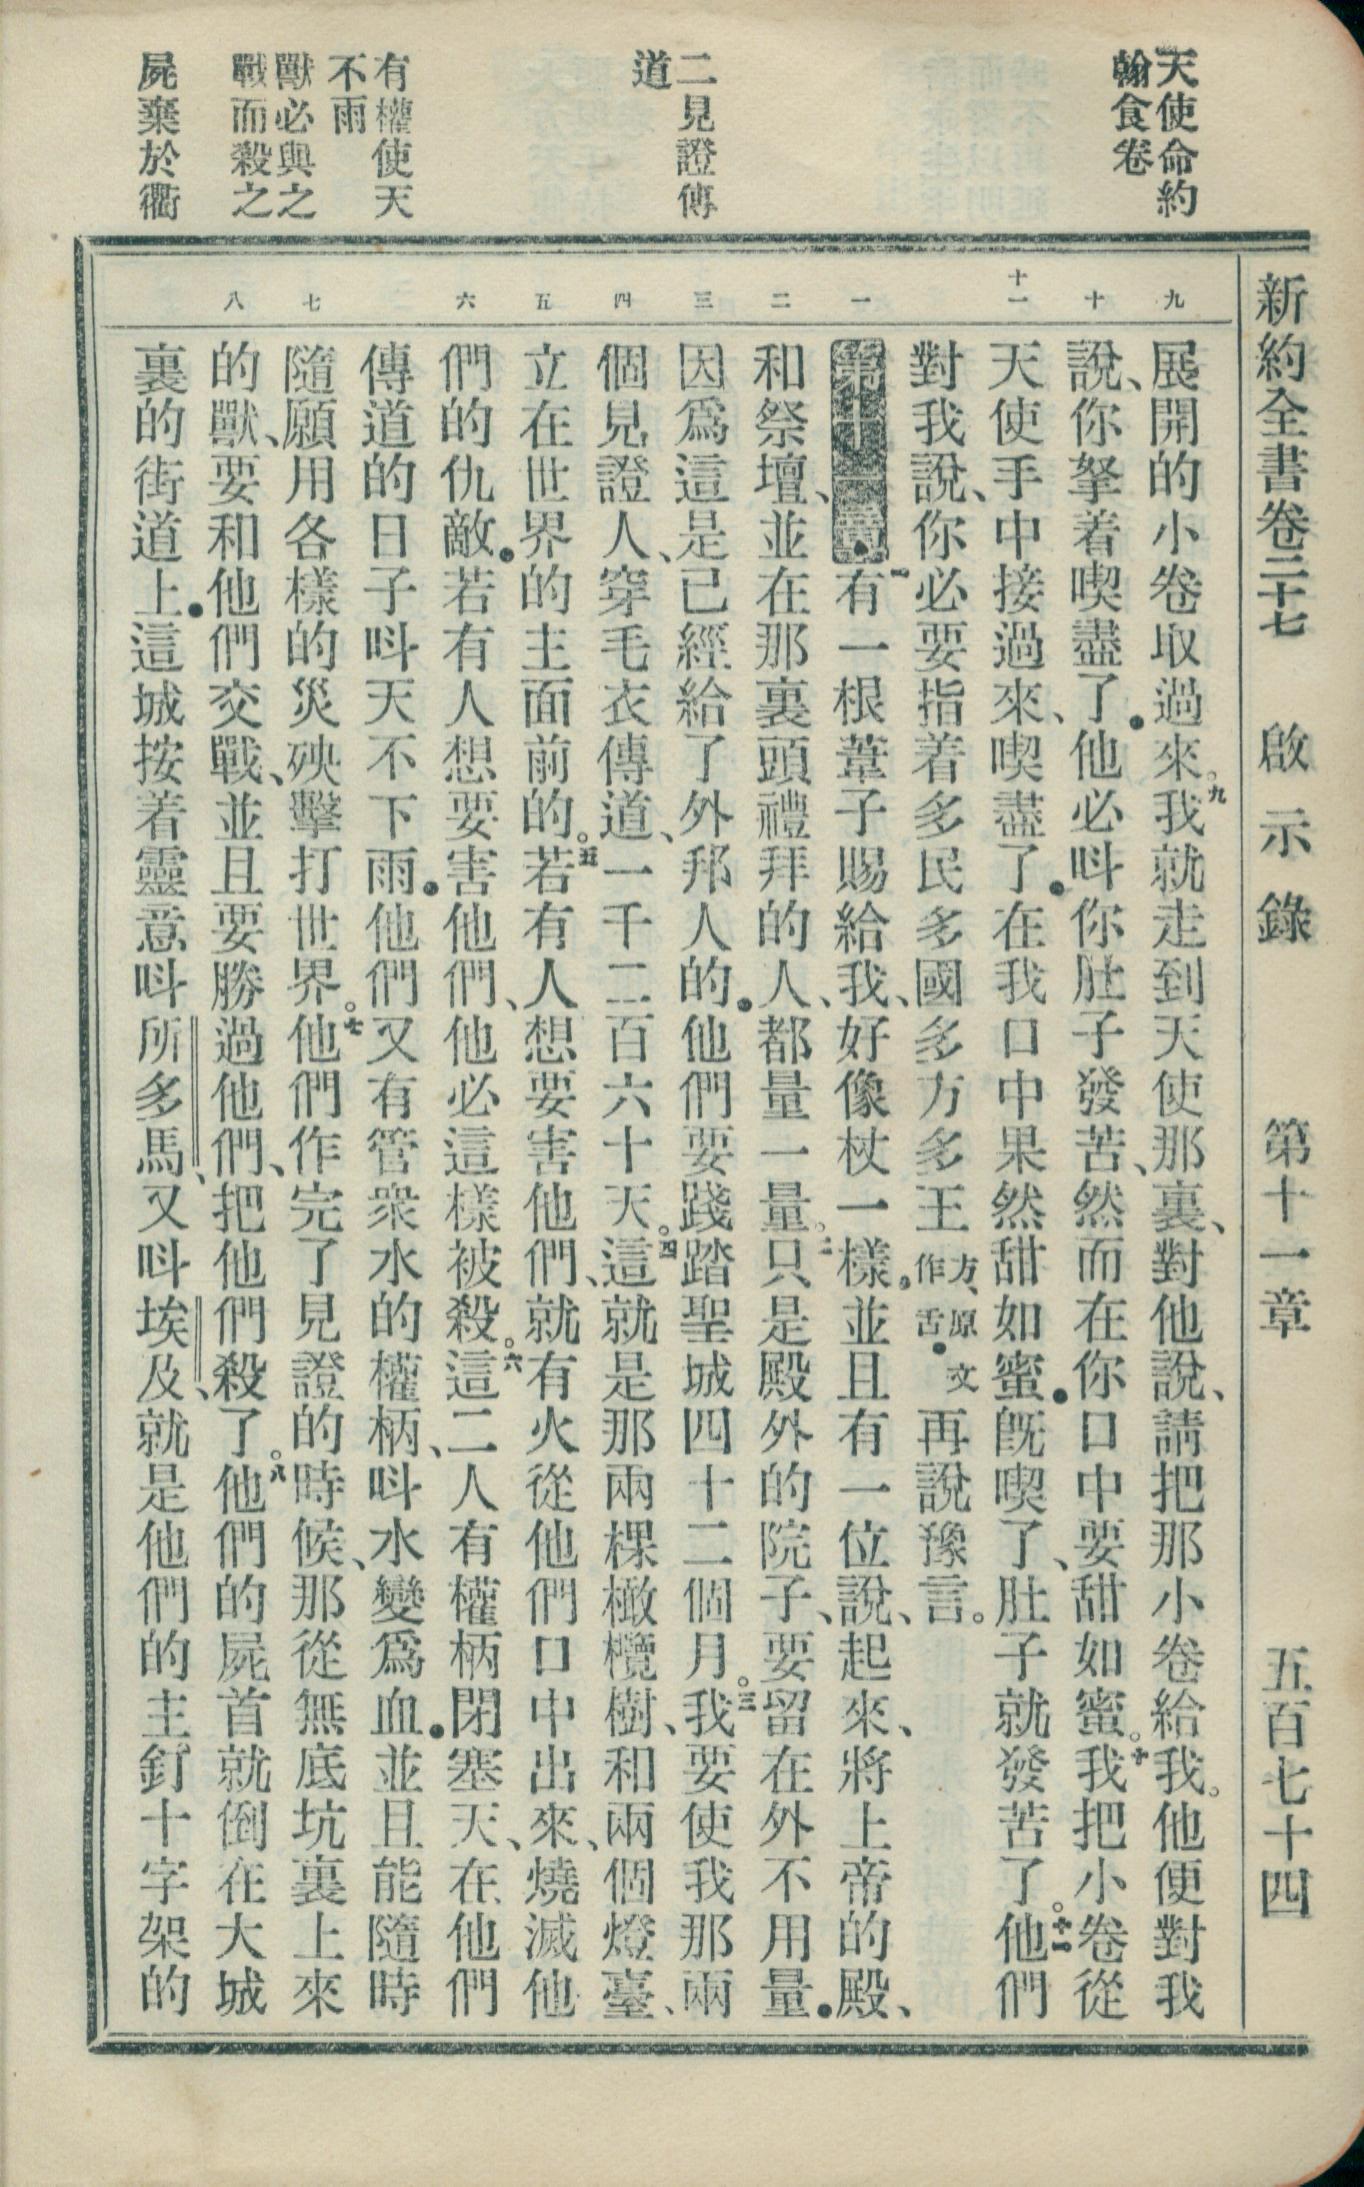 新約全書卷二十七　啟示錄　第十一章　五百七十四
天使命約
翰食卷
二見證傳
道
有權使天
不雨
獸必與之
戰而殺之
屍棄於衢
九　十　十一　一　二　三　四　五　六　七　八
展開的小卷取過來。九我就走到天使那裏、對他說、請把那小卷給我。他便對我
說、你拏着喫盡了．他必呌你肚子發苦、然而在你口中要甜如蜜。十我把小卷從
天使手中接過來、喫盡了．在我口中果然甜如蜜．旣喫了、肚子就發苦了。十一他們
對我說、你必要指着多民多國多方多王方、原文作舌．再說豫言。
第十一章．一有一根葦子賜給我、好像杖一樣．並且有一位說、起來、將上帝的殿、
和祭壇、並在那裏頭禮拜的人、都量一量。二只是殿外的院子、要留在外不用量．
因爲這是已經給了外邦人的．他們要踐踏聖城四十二個月。三我要使我那兩
個見證人、穿毛衣傳道、一千二百六十天。四這就是那兩棵橄欖樹、和兩個燈臺、
立在世界的主面前的。五若有人想要害他們、就有火從他們口中出來、燒滅他
們的仇敵．若有人想要害他們、他必這樣被殺。六這二人有權柄閉塞天、在他們
傳道的日子呌天不下雨．他們又有管衆水的權柄、呌水變爲血．並且能隨時
隨願用各樣的災殃擊打世界。七他們作完了見證的時候、那從無底坑裏上來
的獸、要和他們交戰、並且要勝過他們、把他們殺了。八他們的屍首就倒在大城
裏的街道上．這城按着靈意呌所多馬、又呌埃及、就是他們的主釘十字架的